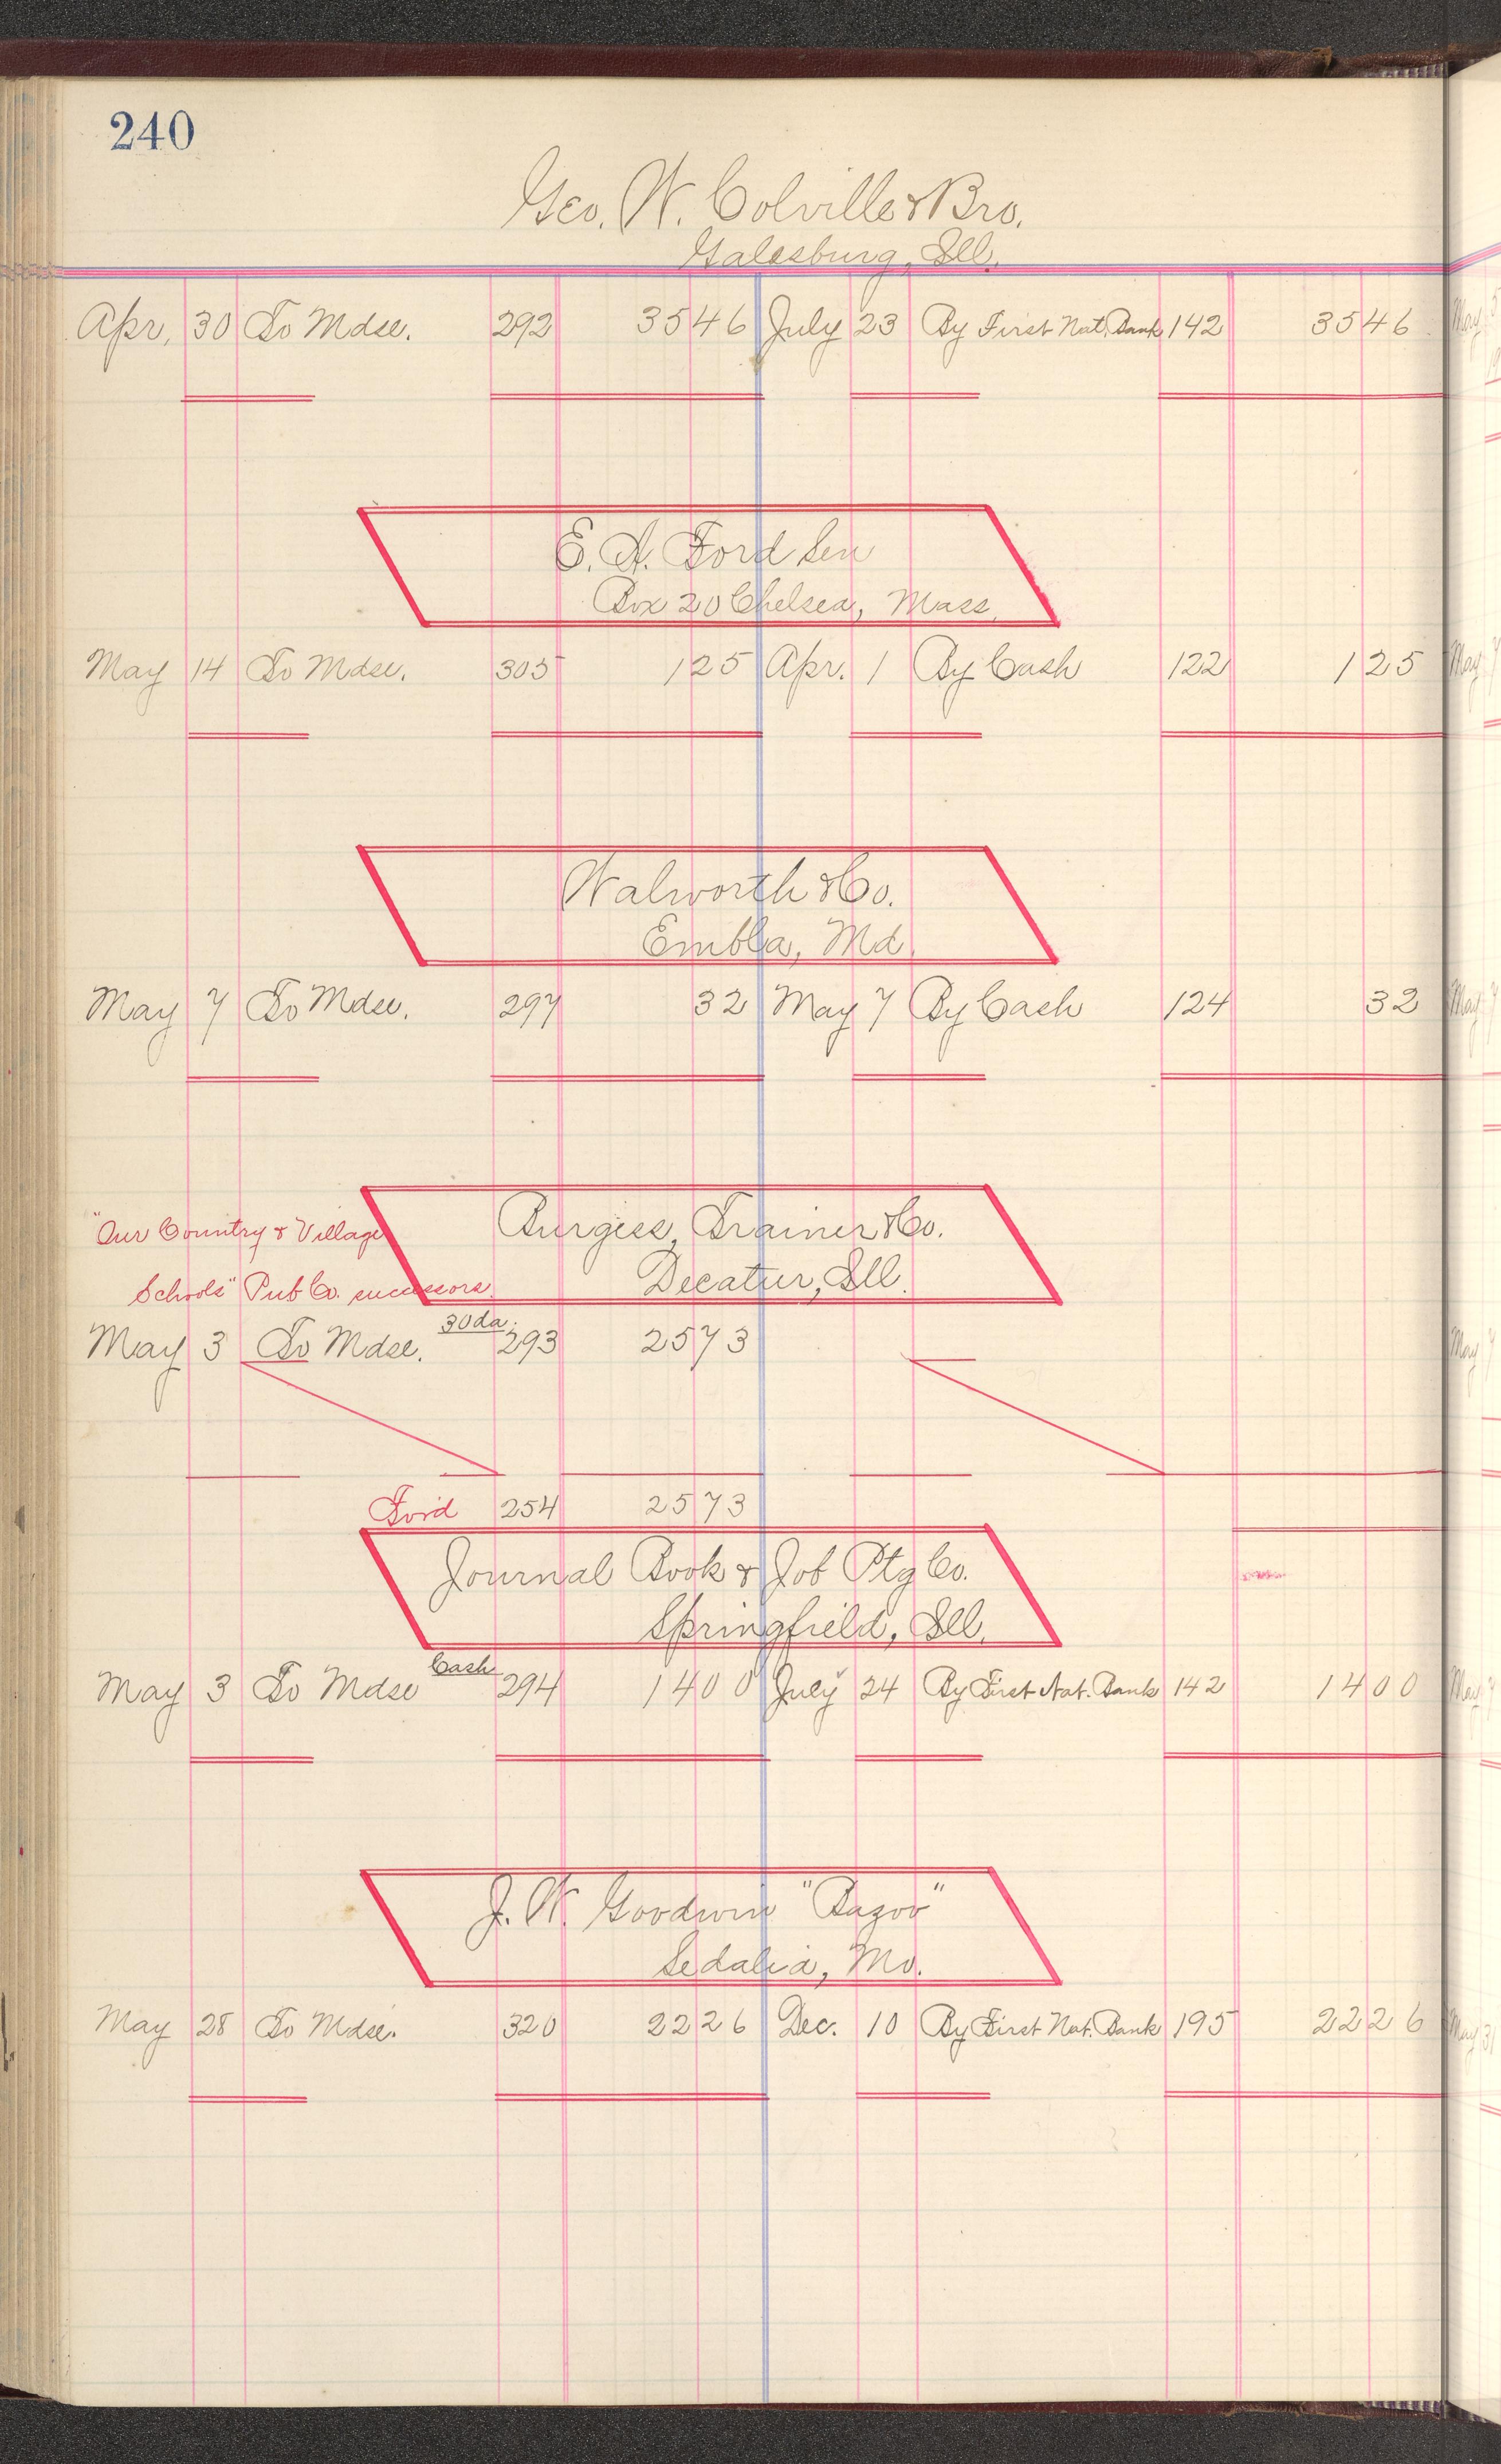 240
Geo. W. Colville & Bro.
Galesburg, Ill.
Apr. 30 To Mdse. 292 35 46 July 23 By First Nat. Bank 142 35 46
E. A. Ford Sen
Box 20 Chelsea, Mass.
May 14 To Mdse. 305 1 25 Apr. 1 By Cash 122 1 25
Walworth & Co.
Embla, Md.
May 7 To Mdse. 297 32 May 7 By Cash 124 32
"Our Country & Village
Schools" Pub Co. successors.
Burgess, Trainer & Co.
Decatur, Ill.
30 da.
May 3 To Mdse. 293 25 73
Ford 254 25 73
Journal Book & Job Ptg Co.
Springfield, Ill.
Cash
May 3 To Mdse 294 14 00 July 24 By First Nat. Bank 142 14 00
J. W. Goodwin "Bazoo"
Sedalia, Mo.
May 28 To Mdse. 320 22 26 Dec. 10 By First Nat. Bank 195 22 26